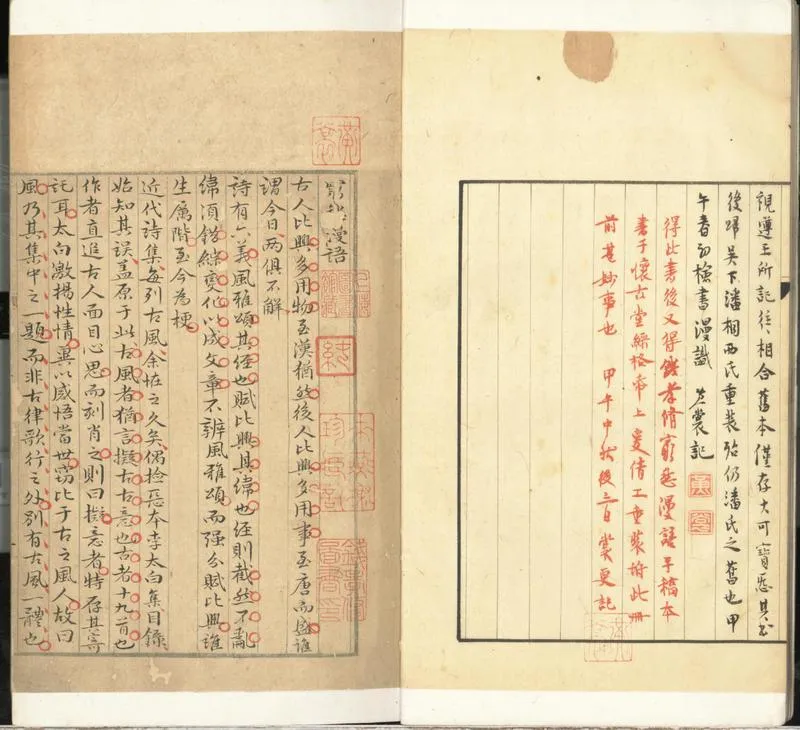 說遵王所記往相合舊本僅存大可寶惡其出
後歸吳下潘桐西氏重裝殆仍潘氏之舊也甲
午春初檢書漫識 裳記
得此書後又得錢孝脩窮愁漫語手稿本
書于懷古堂綠格紙上爰倩工重裝附此冊
前甚妙事也 甲午中秋後三日裳更記
窮愁漫語
古人比興多用物至漢猶然後人比興多用事至唐而盛誰
謂今日兩俱不解
詩有六義風雅頌其經也賦比興其緯也經則截然不亂
緯須錯綜變化以成文章不辨風雅頌而强分賦比興誰
生厲階至今為梗
近代詩集每列古風余怪之久矣偶檢惡本李太白集目錄
始知其誤蓋原于此古風者猶言擬古古意也古者十九首也
作者直追古人面目心思而刻肖之則曰擬意者特存其寄
託耳太白激揚性情異以感悟當世竊比于古之風人故曰
風乃其集中之一題而非古律歌行之外別有古風一體也